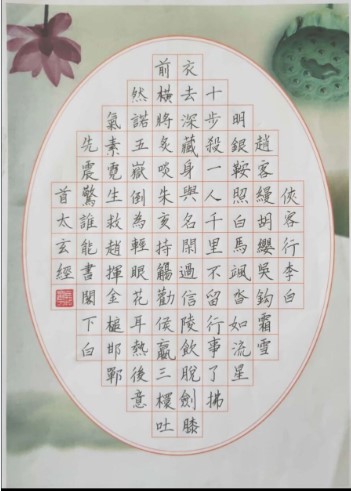 俠客行李白
趙客縵胡纓吳鈎霜雪
明銀鞍照白馬颯沓如流星
十步殺一人千里不留行事了拂
衣去深藏身與名閑過信陵飲脫劍膝
前橫將炙啖朱亥持觴勸侯嬴三桮吐
然諾五嶽倒為輕眼花耳熱後意
氣素霓生救趙揮金槌邯鄲
先震驚誰能書閣下白
首太玄經